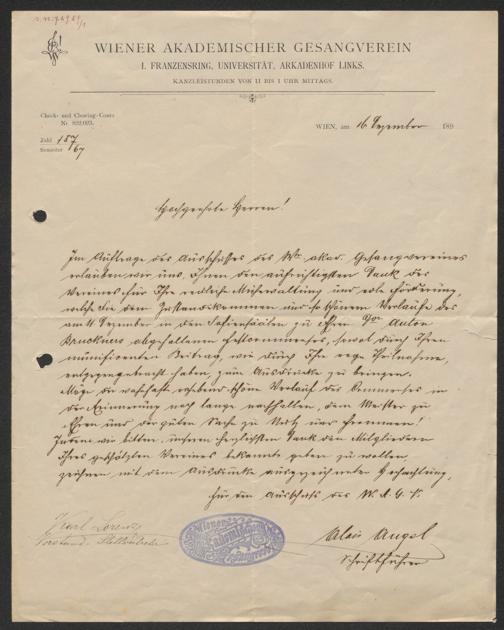 WIENER AKADEMISCHER GESANGVEREIN
I. FRANZENSRING, UNIVERSITÄT, ARKADENHOF LINKS.
KANZLEISTUNDEN VON 11 BIS 1 UHR MITTAGS.
Check- und Clearing-Conto
Nr. 892.093.
Zahl 157
Semester 67
WIEN, am 16 Dezember 189
Hochgeehrte Herren!
Im Auftrage des Ausschusses des Wr. akad. Gesangvereines
erlauben wir uns, Ihnen den aufrichtigsten Dank des
Vereines für Ihre redliche Mühewaltung und edle Förderung,
welche Sie dem Zustandekommen und schönen Verlaufe des
am 11 Dezember in den Sofiensäälen zu Ehren Dor Anton
Bruckners abgehaltenen Festcommerses, sowol durch Ihren
munificenten Beitrag, wie durch Ihre rege Theilnahme,
entgegengebracht haben, zum Ausdrucke zu bringen.
Möge der wahrhaft erhebend schöne Verlauf des Commerses in
der Erinnerung noch lange nachhallen, dem Meister zu
Ehren und der guten Sache zu Nutz und Frommen!
Indem wir bitten, unsern herzlichsten Dank den Mitgliedern
Ihres geschätzten Vereines bekannt geben zu wollen,
zeichnen mit dem Ausdrucke ausgezeichneter Hochachtung,
für den Ausschuss des W. A. G. V.
Karl Lorenz
Vorstand-Stellvertreter
Alois Angel
Schriftführer